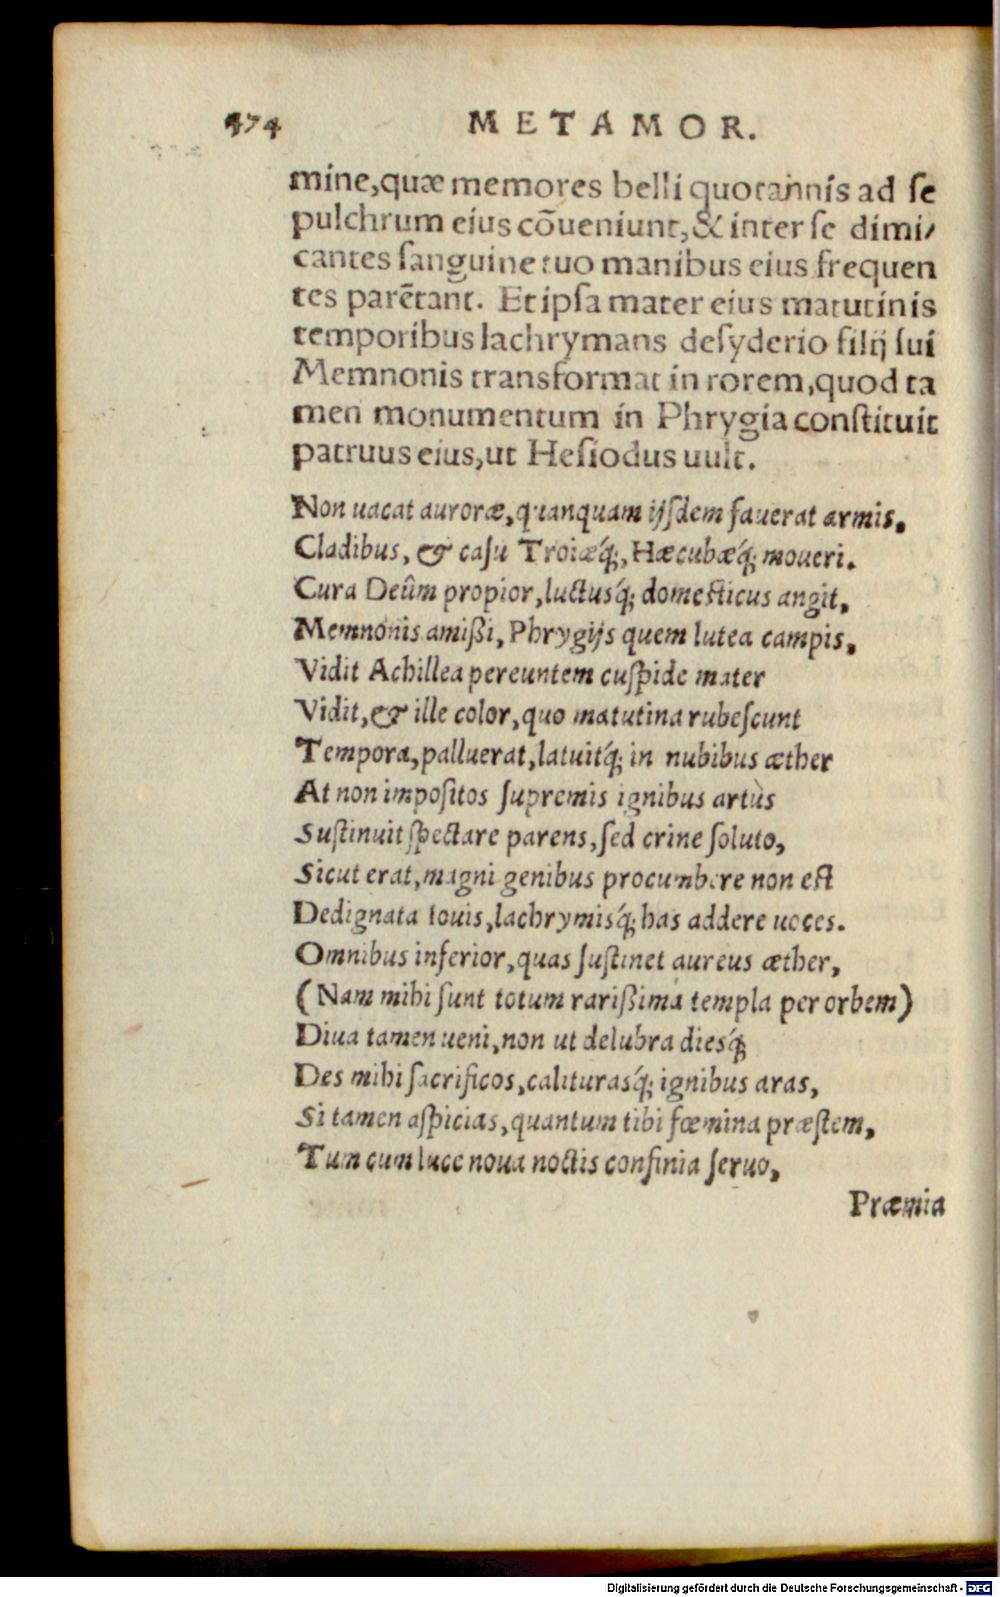 474 METAMOR.
mine,quæ memores belli quotannis ad ſe
pulchrum eius cõueniunt,& inter ſe dimi/
cantes ſanguine tuo manibus eius frequen
tes parẽtant. Et ipſa mater eius matutinis
temporibus lachrymans deſyderio filij ſui
Memnonis transformat in rorem,quod ta
men monumentum in Phrygia conſtituit
patruus eius,ut Heſiodus uult.
Non uacat auroræ,quanquam ijſdem fauerat armis,
Cladibus, & caſu Troiæq́;, Hæcubæq́; moueri.
Cura Deûm propior,luctusq́; domeſticus angit,
Memnonis amißi, Phrygijs quem lutea campis,
Vidit Achillea pereuntem cuſpide mater
Vidit,& ille color,quo matutina rubeſcunt
Tempora,palluerat,latuitq́; in nubibus æther
At non impoſitos ſupremis ignibus artùs
Suſtinuit ſpectare parens,ſed crine ſoluto,
Sicut erat,magni genibus procumbere non eſt
Dedignata Iouis,lachrymisq́; has addere uoces.
Omnibus inferior,quas ſuſtinet aureus æther,
(Nam mihi ſunt totum rarißima templa per orbem)
Diua tamen ueni,non ut delubra diesq́;
Des mihi ſacrificos,caliturasq́; ignibus aras,
Si tamen aſpicias,quantum tibi fœmina præſtem,
Tum cum luce noua noctis confinia ſeruo,
Præmia
Digitalisierung gefördert durch die Deutsche Forschungsgemeinschaft - DFG